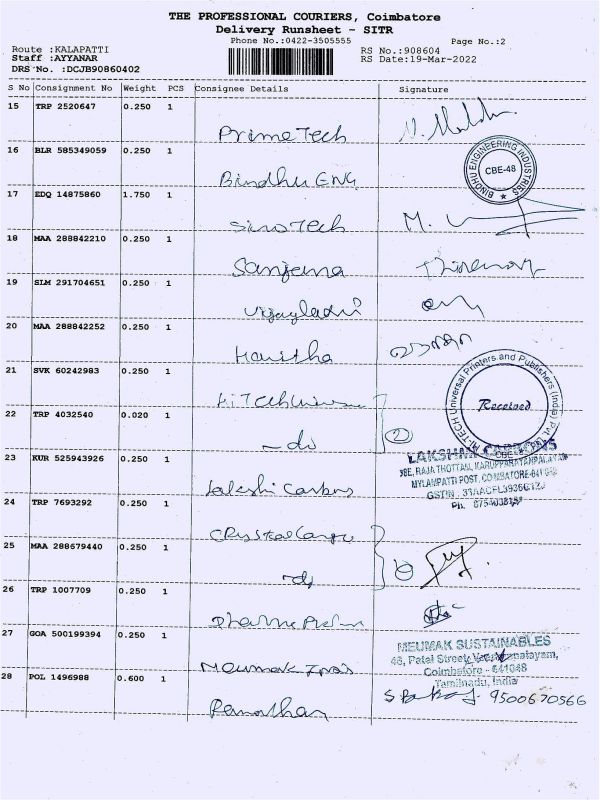 THE PROFESSIONAL COURIERS, Coimbatore
Delivery Runsheet - SITR
Phone No.:0422-3505555 Page No.:2
Route :KALAPATTI RS No.:908604
Staff :AYYANAR RS Date:19-Mar-2022
DRS No. :DCJB90860402
S No Consignment No Weight PCS Consignee Details Signature
15 TRP 2520647 0.250 1
Prime Tech
16 BLR 585349059 0.250 1
Bindhu ENG
BINDHU ENGINEERING INDUSTRIES
CBE-48
17 EDQ 14875860 1.750 1
Sinotech M.
18 MAA 288842210 0.250 1
Sanjeena
19 SLM 291704651 0.250 1
20 MAA 288842252 0.250 1
Haritha
21 SVK 60242983 0.250 1
HI-TECH Universal Printers and Publishers (India) Pvt.
Received
CBE
22 TRP 4032540 0.020 1
-do 2
23 KUR 525943926 0.250 1
LAKSHMI CARBONS
38E, RAJA THOTTAM, KARUPPARAYAMPALAYAM
MYLAMPATTI POST, COIMBATORE-641062
GSTIN
Ph.
24 TRP 7693292 0.250 1
Crystal Cargo
25 MAA 288679440 0.250 1
-do
26 TRP 1007709 0.250 1
27 GOA 500199394 0.250 1
MEUMAK SUSTAINABLES
48, Patel Street,
Coimbatore - 641048
Tamilnadu, India
Meumak
28 POL 1496988 0.600 1
9500670566